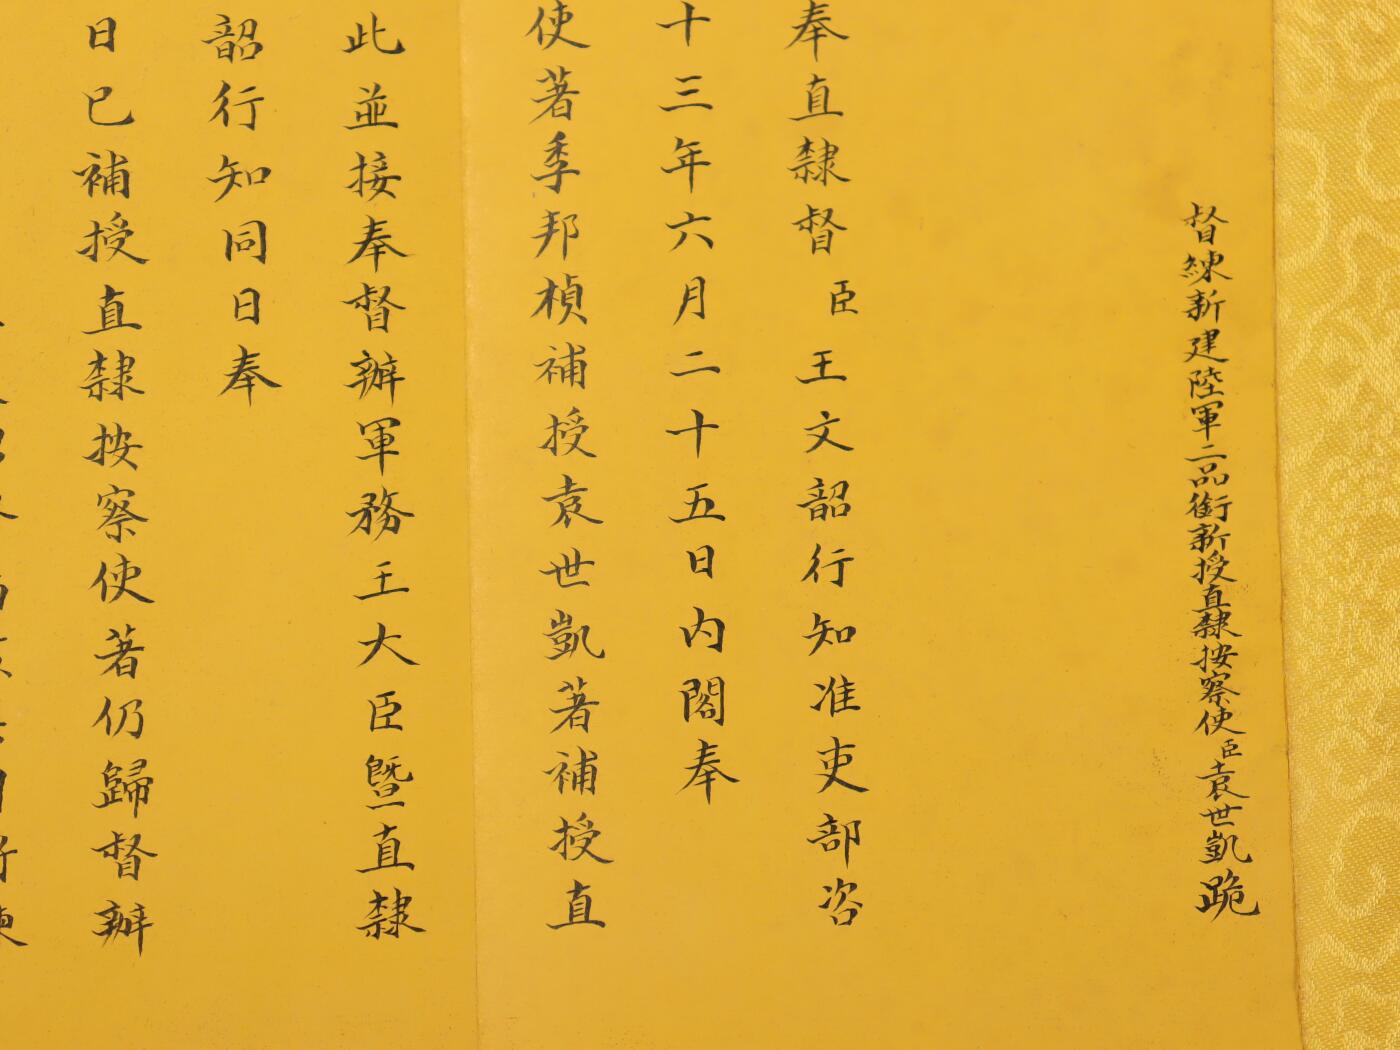 督練新建陸軍二品銜新授直隸按察使臣袁世凱跪
奉直隸督臣王文韶行知准吏部咨
十三年六月二十五日内閣奉
使著季邦楨補授袁世凱著補授直
此並接奉督辦軍務王大臣曁直隸
韶行知同日奉
日已補授直隸按察使著仍歸督辦